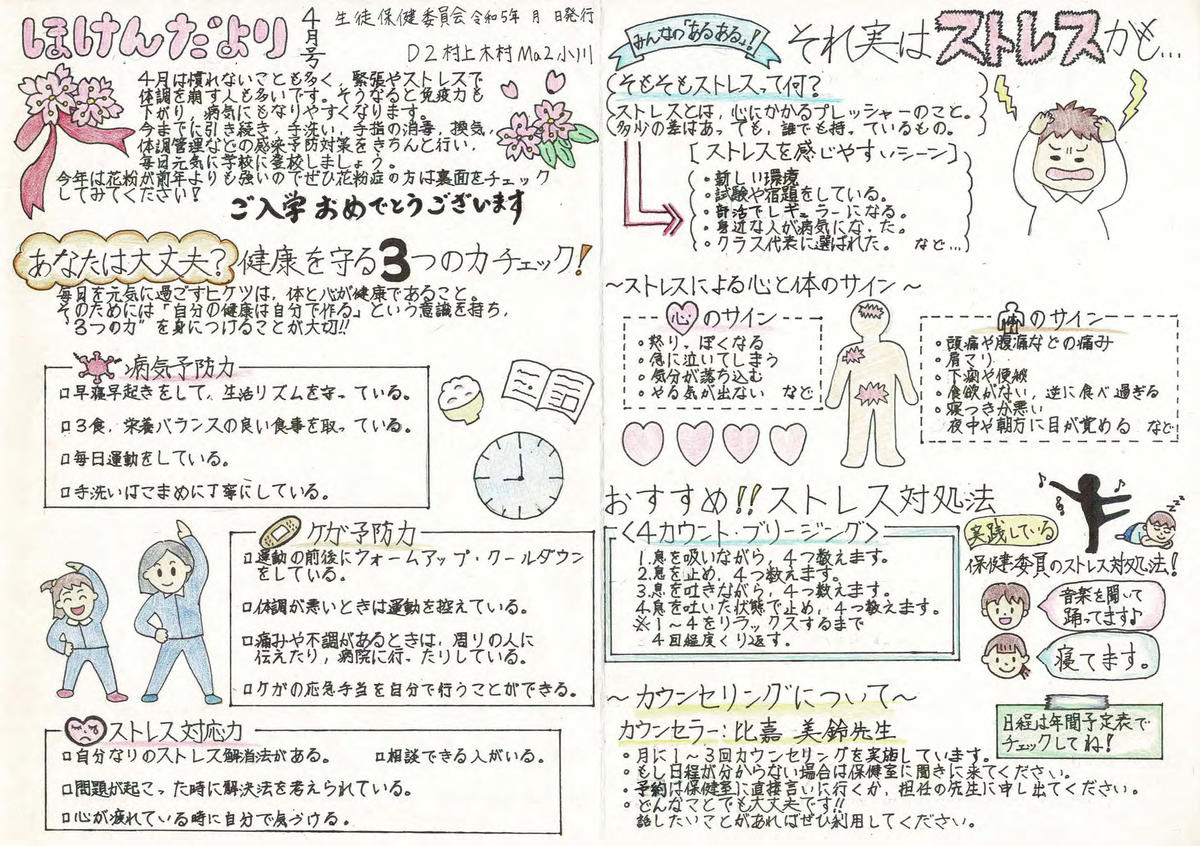 ほけんだより
4月号
生徒保健委員会 令和5年 月 日発行
D2 村上 木村 Ma2 小川
4月は慣れないことも多く、緊張やストレスで
体調を崩す人も多いです。そうなると免疫力も
下がり、病気にもなりやすくなります。
今までに引き続き、手洗い、手指の消毒、換気、
体調管理などの感染予防対策をきちんと行い、
毎日元気に学校に登校しましょう。
今年は花粉が前年よりも強いのでぜひ花粉症の方は裏面をチェック
してみてください!
ご入学おめでとうございます
あなたは大丈夫?健康を守る3つの力チェック!
毎日を元気に過ごすヒケツは、体と心が健康であること。
そのためには「自分の健康は自分で作る」という意識を持ち、
"3つの力"を身につけることが大切!!
病気予防力
□早寝早起きをして、生活リズムを守っている。
□3食、栄養バランスの良い食事を取っている。
□毎日運動をしている。
□手洗いはこまめに丁寧にしている。
ケガ予防力
□運動の前後にウォームアップ・クールダウン
をしている。
□体調が悪いときは運動を控えている。
□痛みや不調があるときは、周りの人に
伝えたり、病院に行ったりしている。
□ケガの応急手当を自分で行うことができる。
ストレス対応力
□自分なりのストレス解消法がある。 □相談できる人がいる。
□問題が起こった時に解決法を考えられている。
□心が疲れている時に自分で気づける。
みんなの「あるある」!
それ実はストレスかも…
そもそもストレスって何?
ストレスとは、心にかかるプレッシャーのこと。
多少の差はあっても、誰でも持っているもの。
[ストレスを感じやすいシーン]
・新しい環境
・試験や宿題をしている。
・部活でレギュラーになる。
・身近な人が病気になった。
・クラス代表に選ばれた。 など…
~ストレスによる心と体のサイン~
心のサイン
・怒りっぽくなる
・急に泣いてしまう
・気分が落ち込む
・やる気が出ない など
体のサイン
・頭痛や腹痛などの痛み
・肩こり
・下痢や便秘
・食欲がない、逆に食べ過ぎる
・寝つきが悪い
夜中や朝方に目が覚める など
おすすめ!!ストレス対処法
<4カウント・ブリージング>
1.息を吸いながら、4つ数えます。
2.息を止め、4つ数えます。
3.息を吐きながら、4つ数えます。
4.息を吐いた状態で止め、4つ数えます。
※1~4をリラックスするまで
4回程度くり返す。
実践している
保健委員のストレス対処法!
音楽を聞いて
踊ってます♪
寝てます。
~カウンセリングについて~
カウンセラー:比嘉 美鈴先生
・月に1~3回カウンセリングを実施しています。
・もし日程が分からない場合は保健室に聞きに来てください。
・予約は保健室に直接言いに行くか、担任の先生に申し出てください。
・どんなことでも大丈夫です!!
話したいことがあればぜひ利用してください。
日程は年間予定表で
チェックしてね!